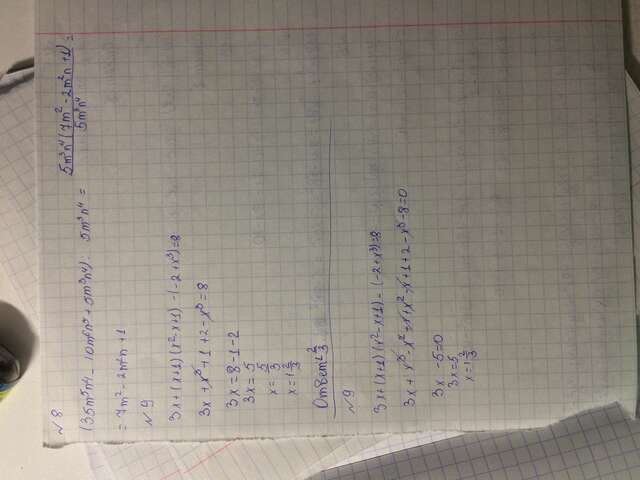 №8
(35m⁵n⁴ - 10m⁶n⁵ + 5m³n⁴) : 5m³n⁴ = 5m³n⁴(7m² - 2m²n + 1) / 5m³n⁴ =
= 7m² - 2m²n + 1
№9
3x + (x+1)(x² - x + 1) - (-2 + x³) = 8
3x + x³ + 1 + 2 - x³ = 8
3x = 8 - 1 - 2
3x = 5
x = 5/3
x = 1 2/3
Ответ 1 2/3
№9
3x + (x+1)(x² - x + 1) - (-2 + x³) = 8
3x + x³ - x² + x + x² - x + 1 + 2 - x³ - 8 = 0
3x - 5 = 0
3x = 5
x = 1 2/3